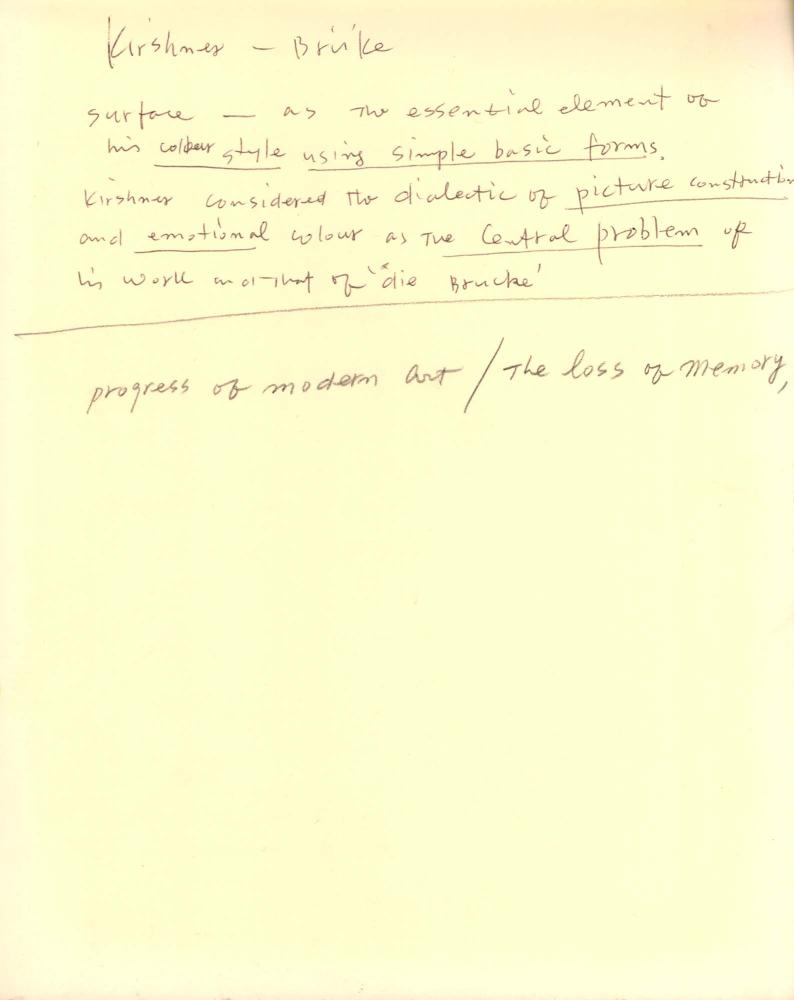 Kirshner — Brüke
surface — as the essential element of
his colour style using simple basic forms.
Kirshner considered the dialectic of picture construction
and emotional colour as the Central problem of
his work and that of "die Brucke'
progress of modern art / The loss of Memory,